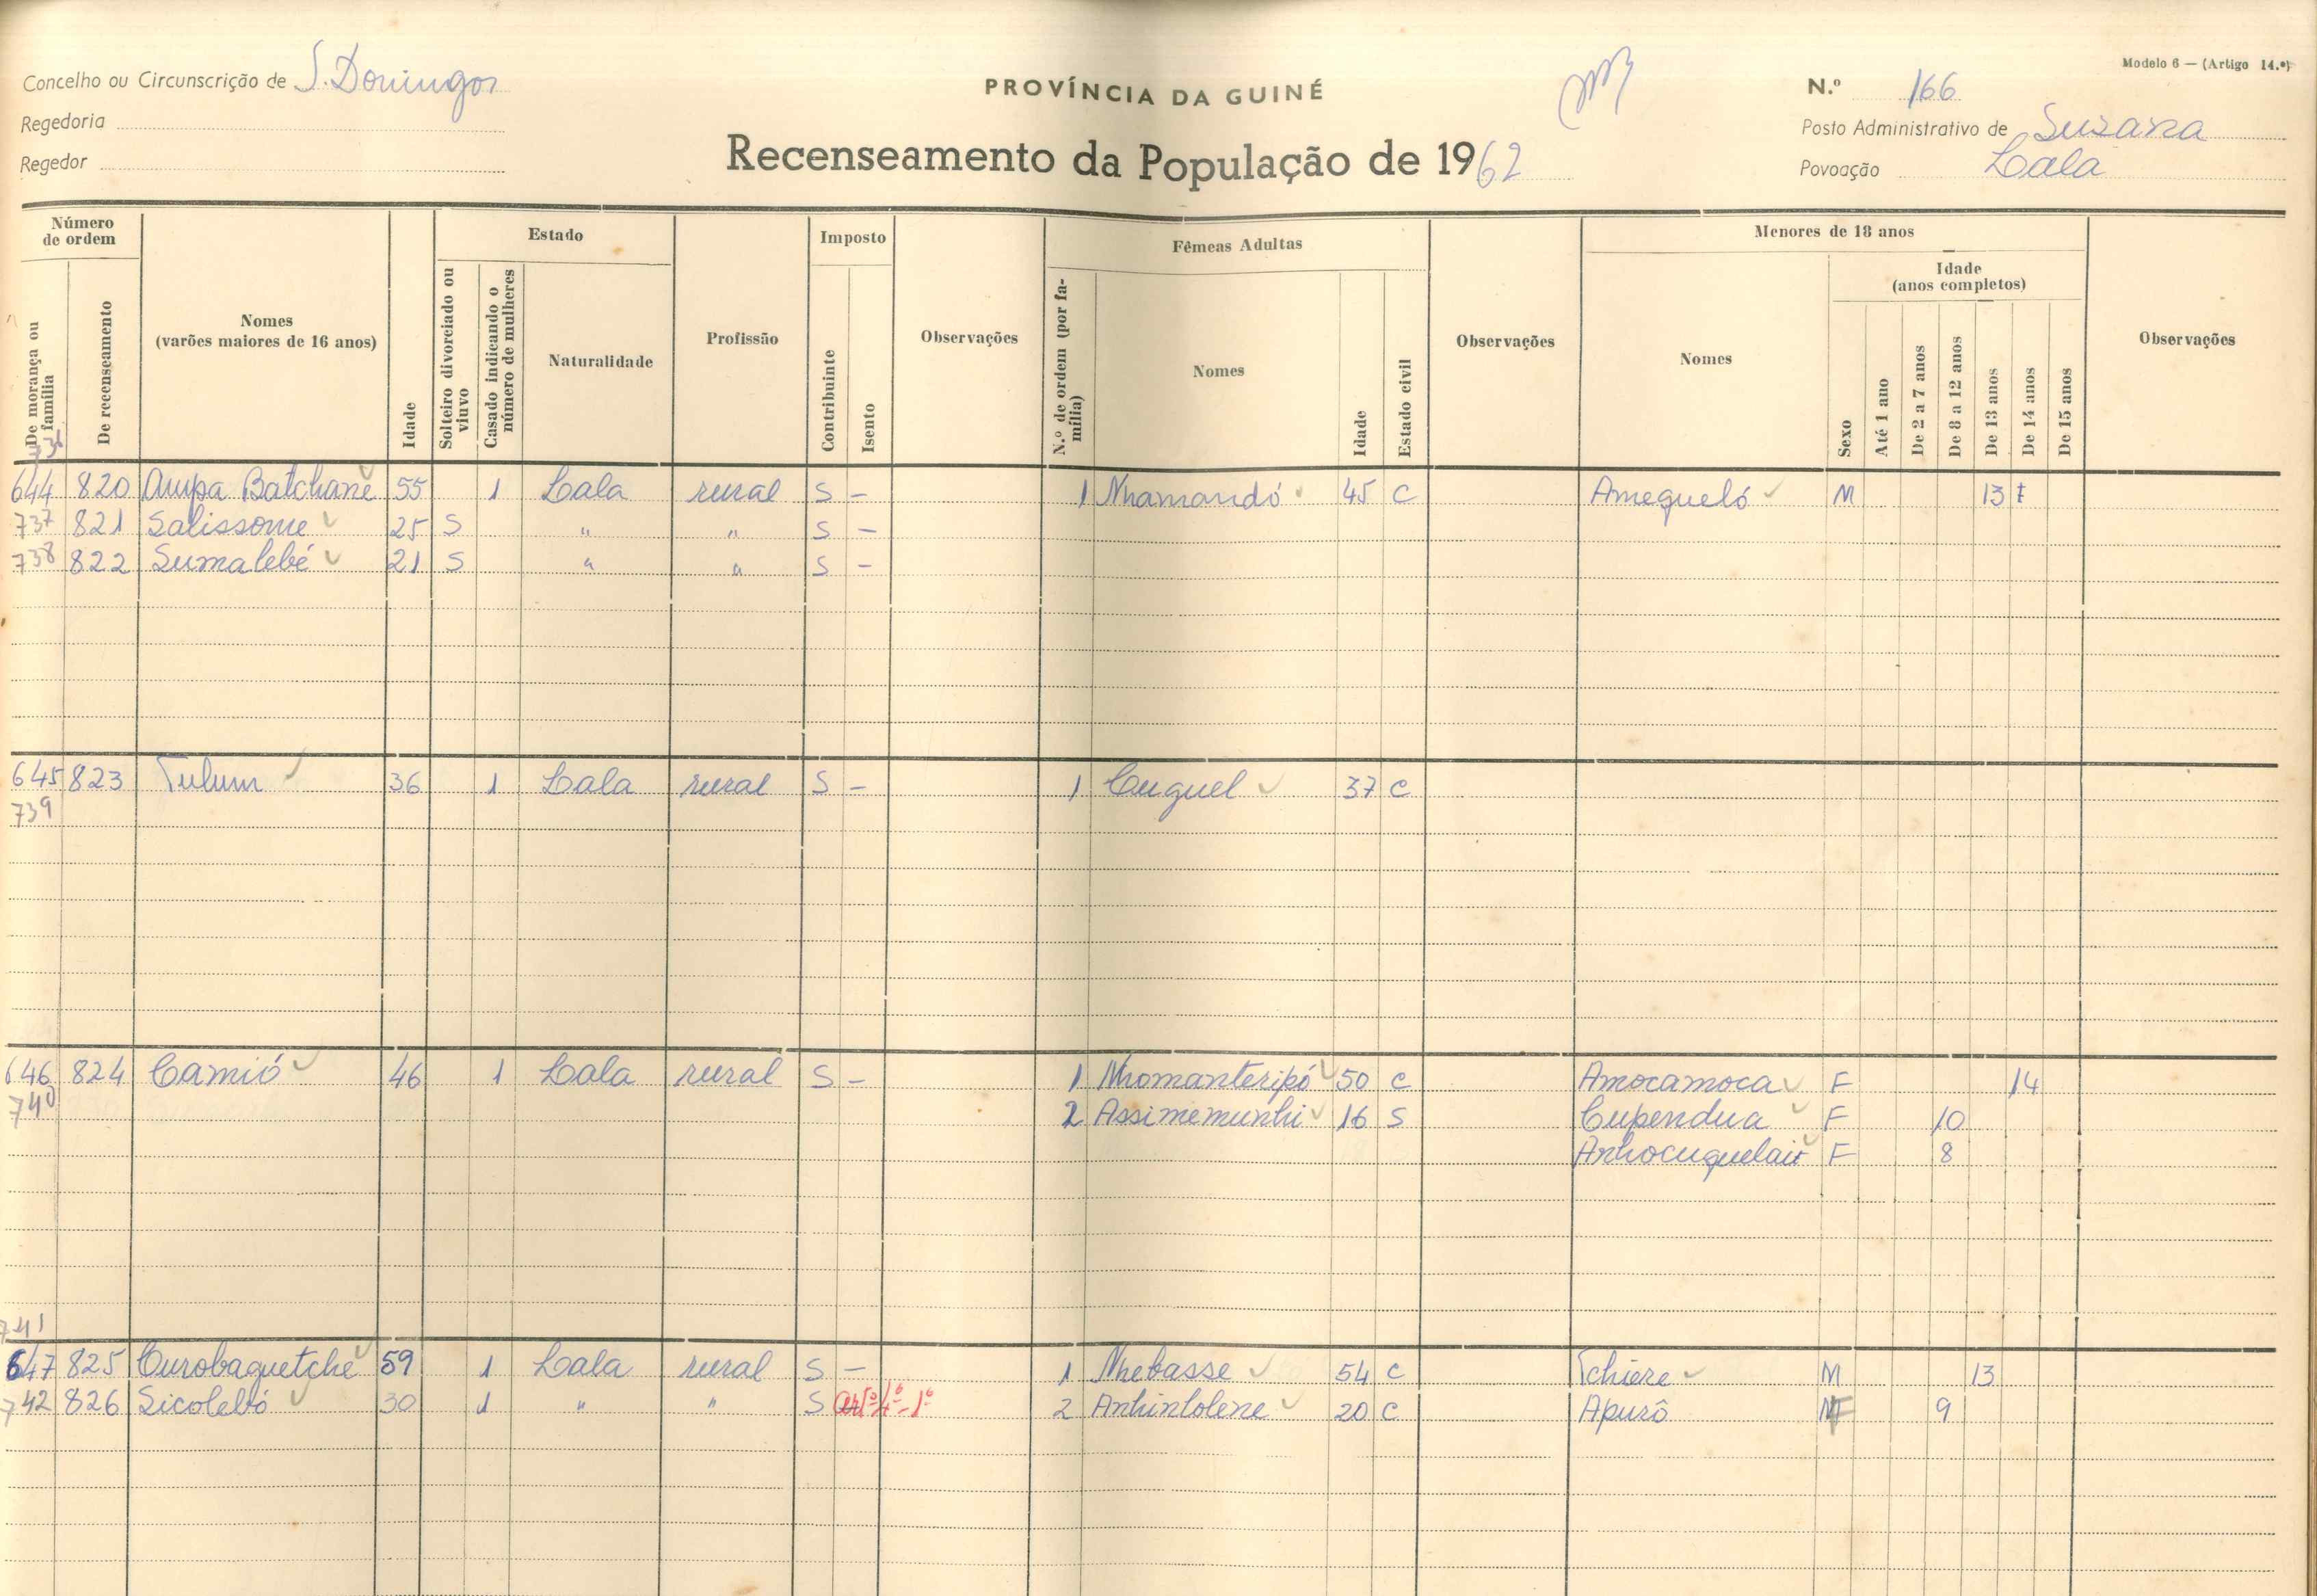 Modelo 6 — (Artigo 14.º)
Concelho ou Circunscrição de S. Domingos
PROVÍNCIA DA GUINÉ
N.º 166
Regedoria
Posto Administrativo de Suzana
Regedor
Recenseamento da População de 1962
Povoação Lala
Número de ordem
De morança ou família
De recenseamento
Nomes
(varões maiores de 16 anos)
Idade
Estado
Solteiro divorciado ou viuvo
Casado indicando o número de mulheres
Naturalidade
Profissão
Imposto
Contribuinte
Isento
Observações
Fêmeas Adultas
N.º de ordem (por família)
Nomes
Idade
Estado civil
Observações
Menores de 18 anos
Nomes
Idade
(anos completos)
Sexo
Até 1 ano
De 2 a 7 anos
De 8 a 12 anos
De 13 anos
De 14 anos
De 15 anos
Observações
736
644 820 Aupa Batchane 55 1 Lala rural S - 1 Nhamandó 45 C Amequeló M 13
737 821 Salissome 25 S " " S -
738 822 Sumalebé 21 S " " S -
645 823 Tulum 36 1 Lala rural S - 1 Cuguel 37 C
739
646 824 Camió 46 1 Lala rural S - 1 Nhomanteripó 50 C Amocamoca F 14
740 2 Assimemunhi 16 S Cupendua F 10
F 8
741
647 825 Curobaguetche 59 1 Lala rural S - 1 Nhebasse 54 C Tchiere M 13
742 826 Sicolebó 30 1 " " S 2 Anhintolene 20 C Apurô F 9